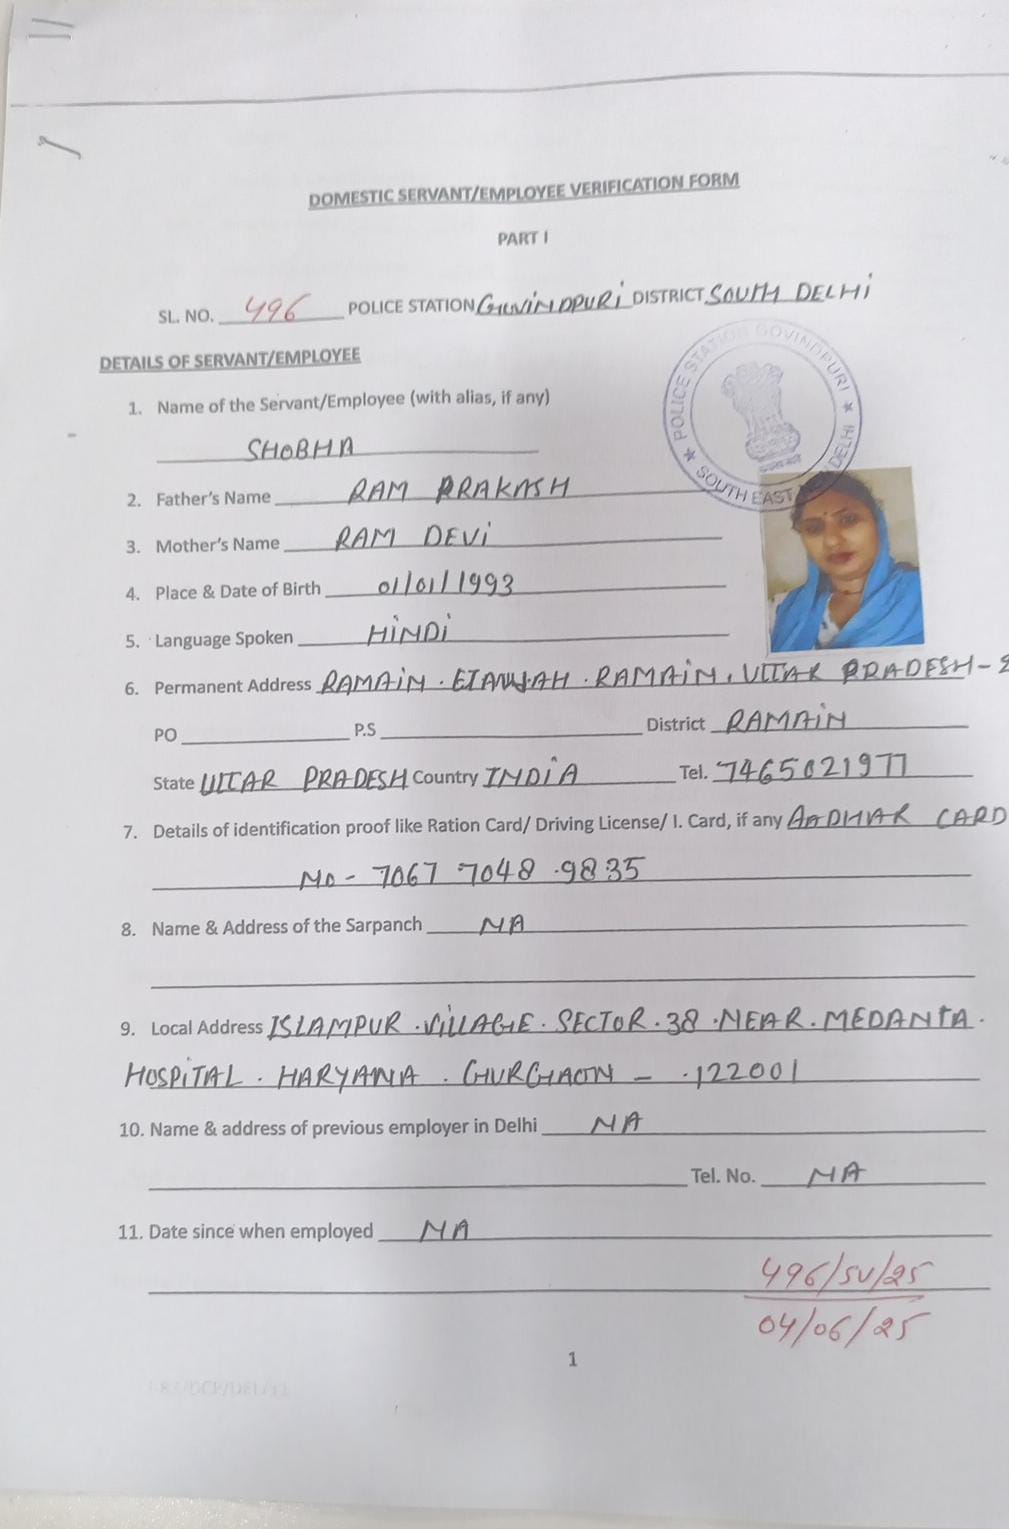 DOMESTIC SERVANT/EMPLOYEE VERIFICATION FORM
PART I
SL. NO. 496 POLICE STATION GOVINDPURI DISTRICT SOUTH DELHI
POLICE STATION GOVINDPURI ★ SOUTH EAST NEW DELHI ★
DETAILS OF SERVANT/EMPLOYEE
1. Name of the Servant/Employee (with alias, if any)
SHOBHA
2. Father's Name RAM PRAKASH
3. Mother's Name RAM DEVI
4. Place & Date of Birth 01/01/1993
5. Language Spoken HINDI
6. Permanent Address RAMAIN . ETAWAH . RAMAIN, UTTAR PRADESH -
PO P.S District RAMAIN
State UTTAR PRADESH Country INDIA Tel. 7465021977
7. Details of identification proof like Ration Card/ Driving License/ I. Card, if any AADHAR CARD
NO - 7067 7048 9835
8. Name & Address of the Sarpanch NA
9. Local Address ISLAMPUR . VILLAGE . SECTOR . 38 . NEAR . MEDANTA .
HOSPITAL . HARYANA . GURGAON - . 122001
10. Name & address of previous employer in Delhi NA
Tel. No. NA
11. Date since when employed NA
496/SV/25
04/06/25
1